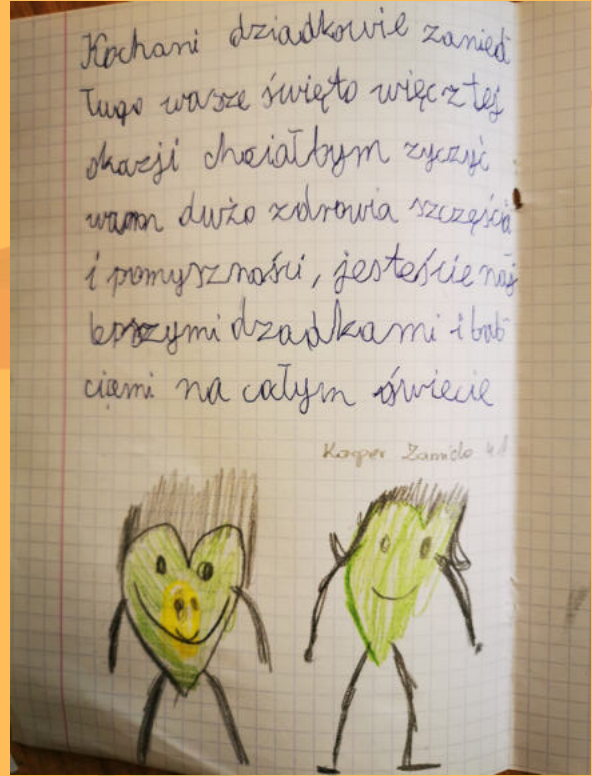 Kochani dziadkowie zanied
ługo wasze święto więc z tej
okazji chciałbym zyczyć
wam dużo zdrowia szczęścia
i pomyszności, jesteście naj
lepszymi dzadkami i bab
ciami na całym świecie
Kacper